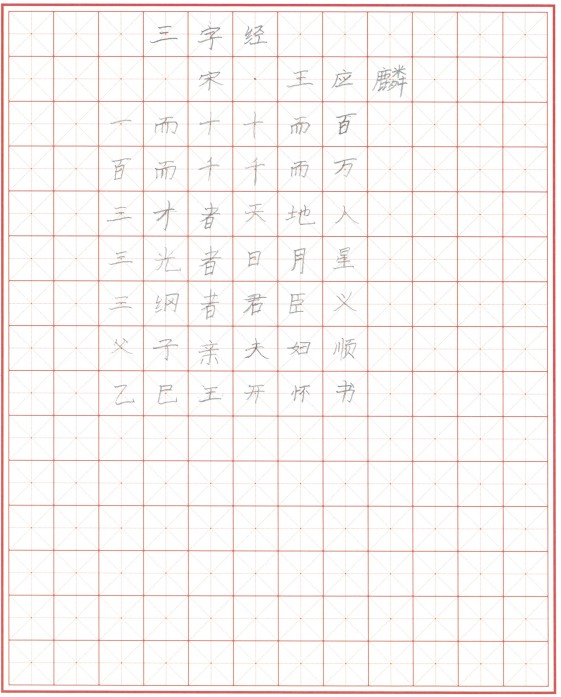 三字经
宋·王应麟
一而十十而百
百而千千而万
三才者天地人
三光者日月星
三纲者君臣义
父子亲夫妇顺
乙巳王开怀书